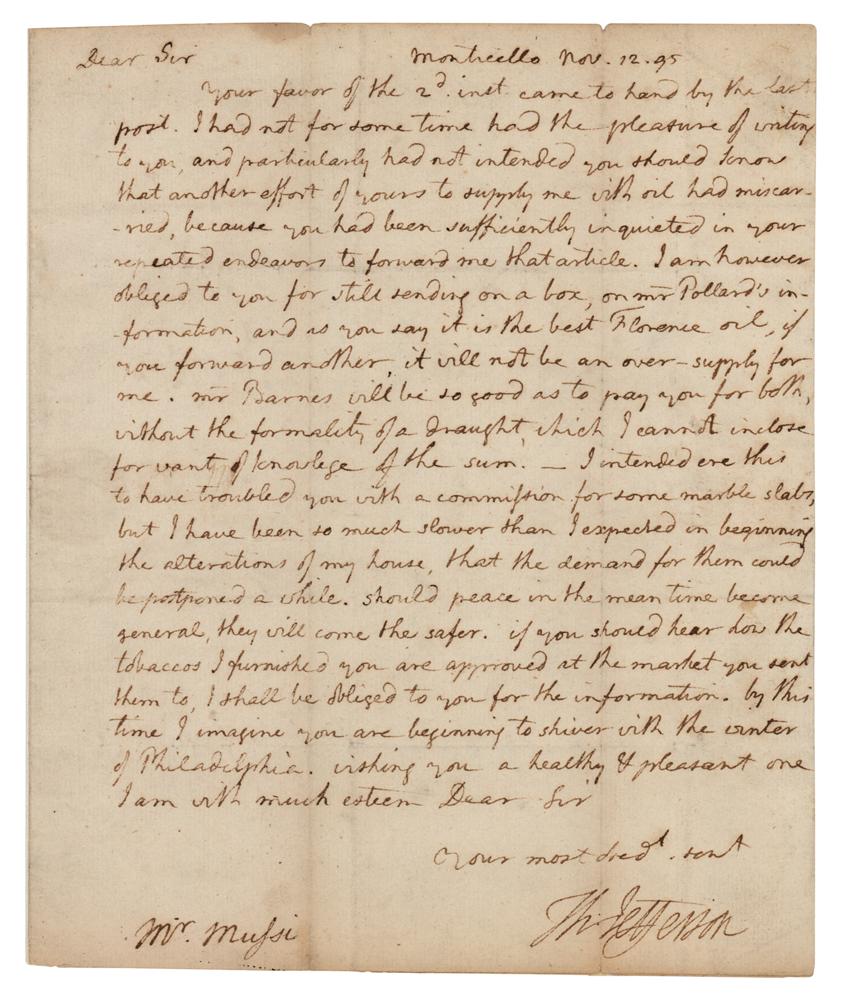 Dear Sir Monticello Nov. 12. 95
Your favor of the 2d. inst. came to hand by the last
post. I had not for some time had the pleasure of writing
to you, and particularly had not intended you should know
that another effort of yours to supply me with oil had miscar-
-ried, because you had been sufficiently inquieted in your
repeated endeavors to forward me that article. I am however
obliged to you for still sending on a box, on mr Pollard's in-
-formation, and as you say it is the best Florence oil, if
you forward another, it will not be an over-supply for
me. mr Barnes will be so good as to pay you for both,
without the formality of a draught, which I cannot inclose
for want of knowlege of the sum. — I intended ere this
to have troubled you with a commission for some marble slabs,
but I have been so much slower than I expected in beginning
the alterations of my house, that the demand for them could
be postponed a while. should peace in the mean time become
general, they will come the safer. if you should hear how the
tobaccos I furnished you are approved at the market you sent
them to, I shall be obliged to you for the information. by this
time I imagine you are beginning to shiver with the winter
of Philadelphia. wishing you a healthy & pleasant one
I am with much esteem Dear Sir
Your most obedt. servt
Th: Jefferson
Mr. Mussi